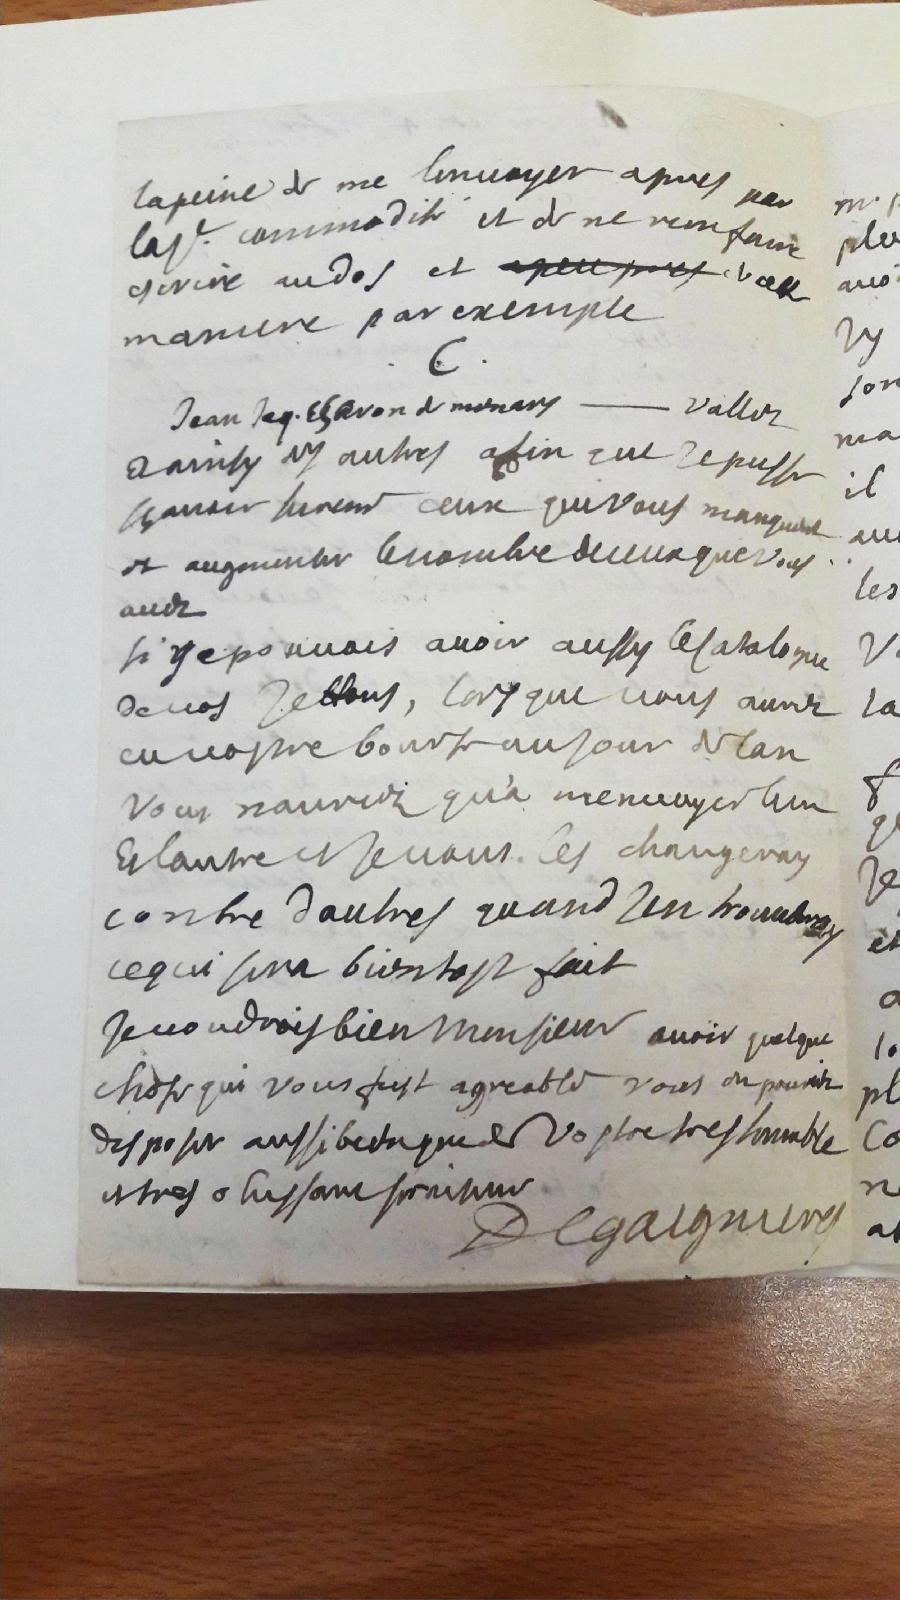 lapeine de me lenuoyer apres par
la p.re commodité et de ne rien faire
escrire audos et apeu pres de cette
maniere par exemple
. C .
Jean Jaq. Charon de menars —— vallier
Et ainsy des autres afin que Je pusse
sçauoir surement ceux qui vous manquent
et augmenter le nombre de ceux que vous
auez
si Je pouuois auoir aussy le Catalogue
de uos Jettons, lorsque uous aurez
eu uostre bourse au Jour de lan
Vous nauriez qu'a menuoyer lun
Et lautre et Je uous les changeray
contre dautres quand Jen trouueray
ce qui sera bientost fait
Je uoudrois bien Monsieur auoir quelque
chose qui vous fust agreable vous en pouriez
disposer aussi bien que de Vostre tres humble
et tres obeissant seruiteur
De gaignieres
m.
plu
auo
Jy
son
ma
il
au
les
V
la
q
Je
et
a
lo
pl
Co
n
at